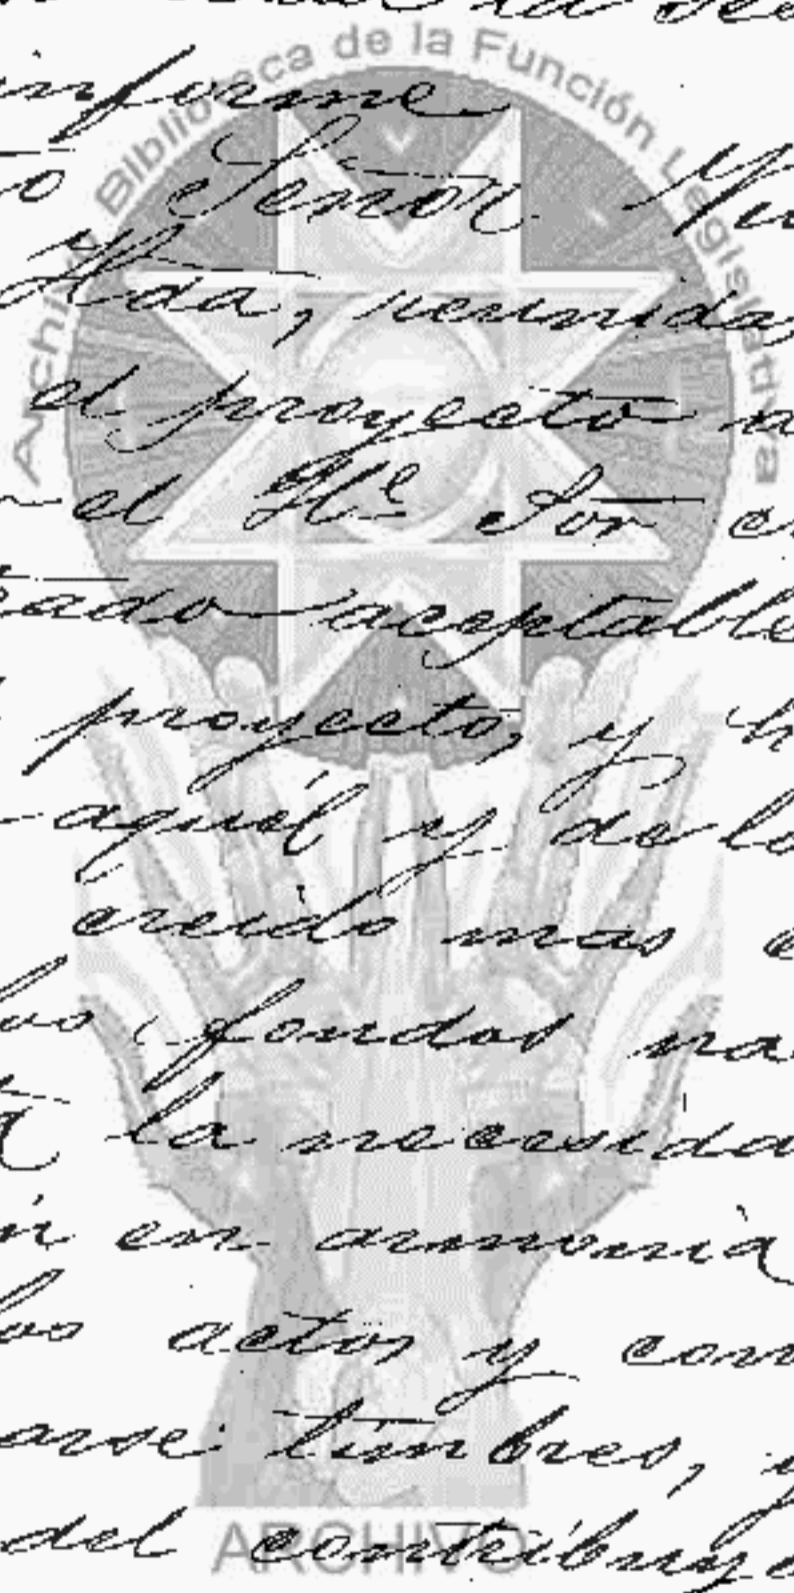 Archivo Biblioteca de la Función Legislativa
informe
Señor
Hda, reunidas
el proyecto
el He Sor
aceptable
proyecto, y h
aquél y de lo
creido mas
los fondos na
la necesida
en armonia
los actos y con
arse timbres, y
del contribuye
ARCHIVO